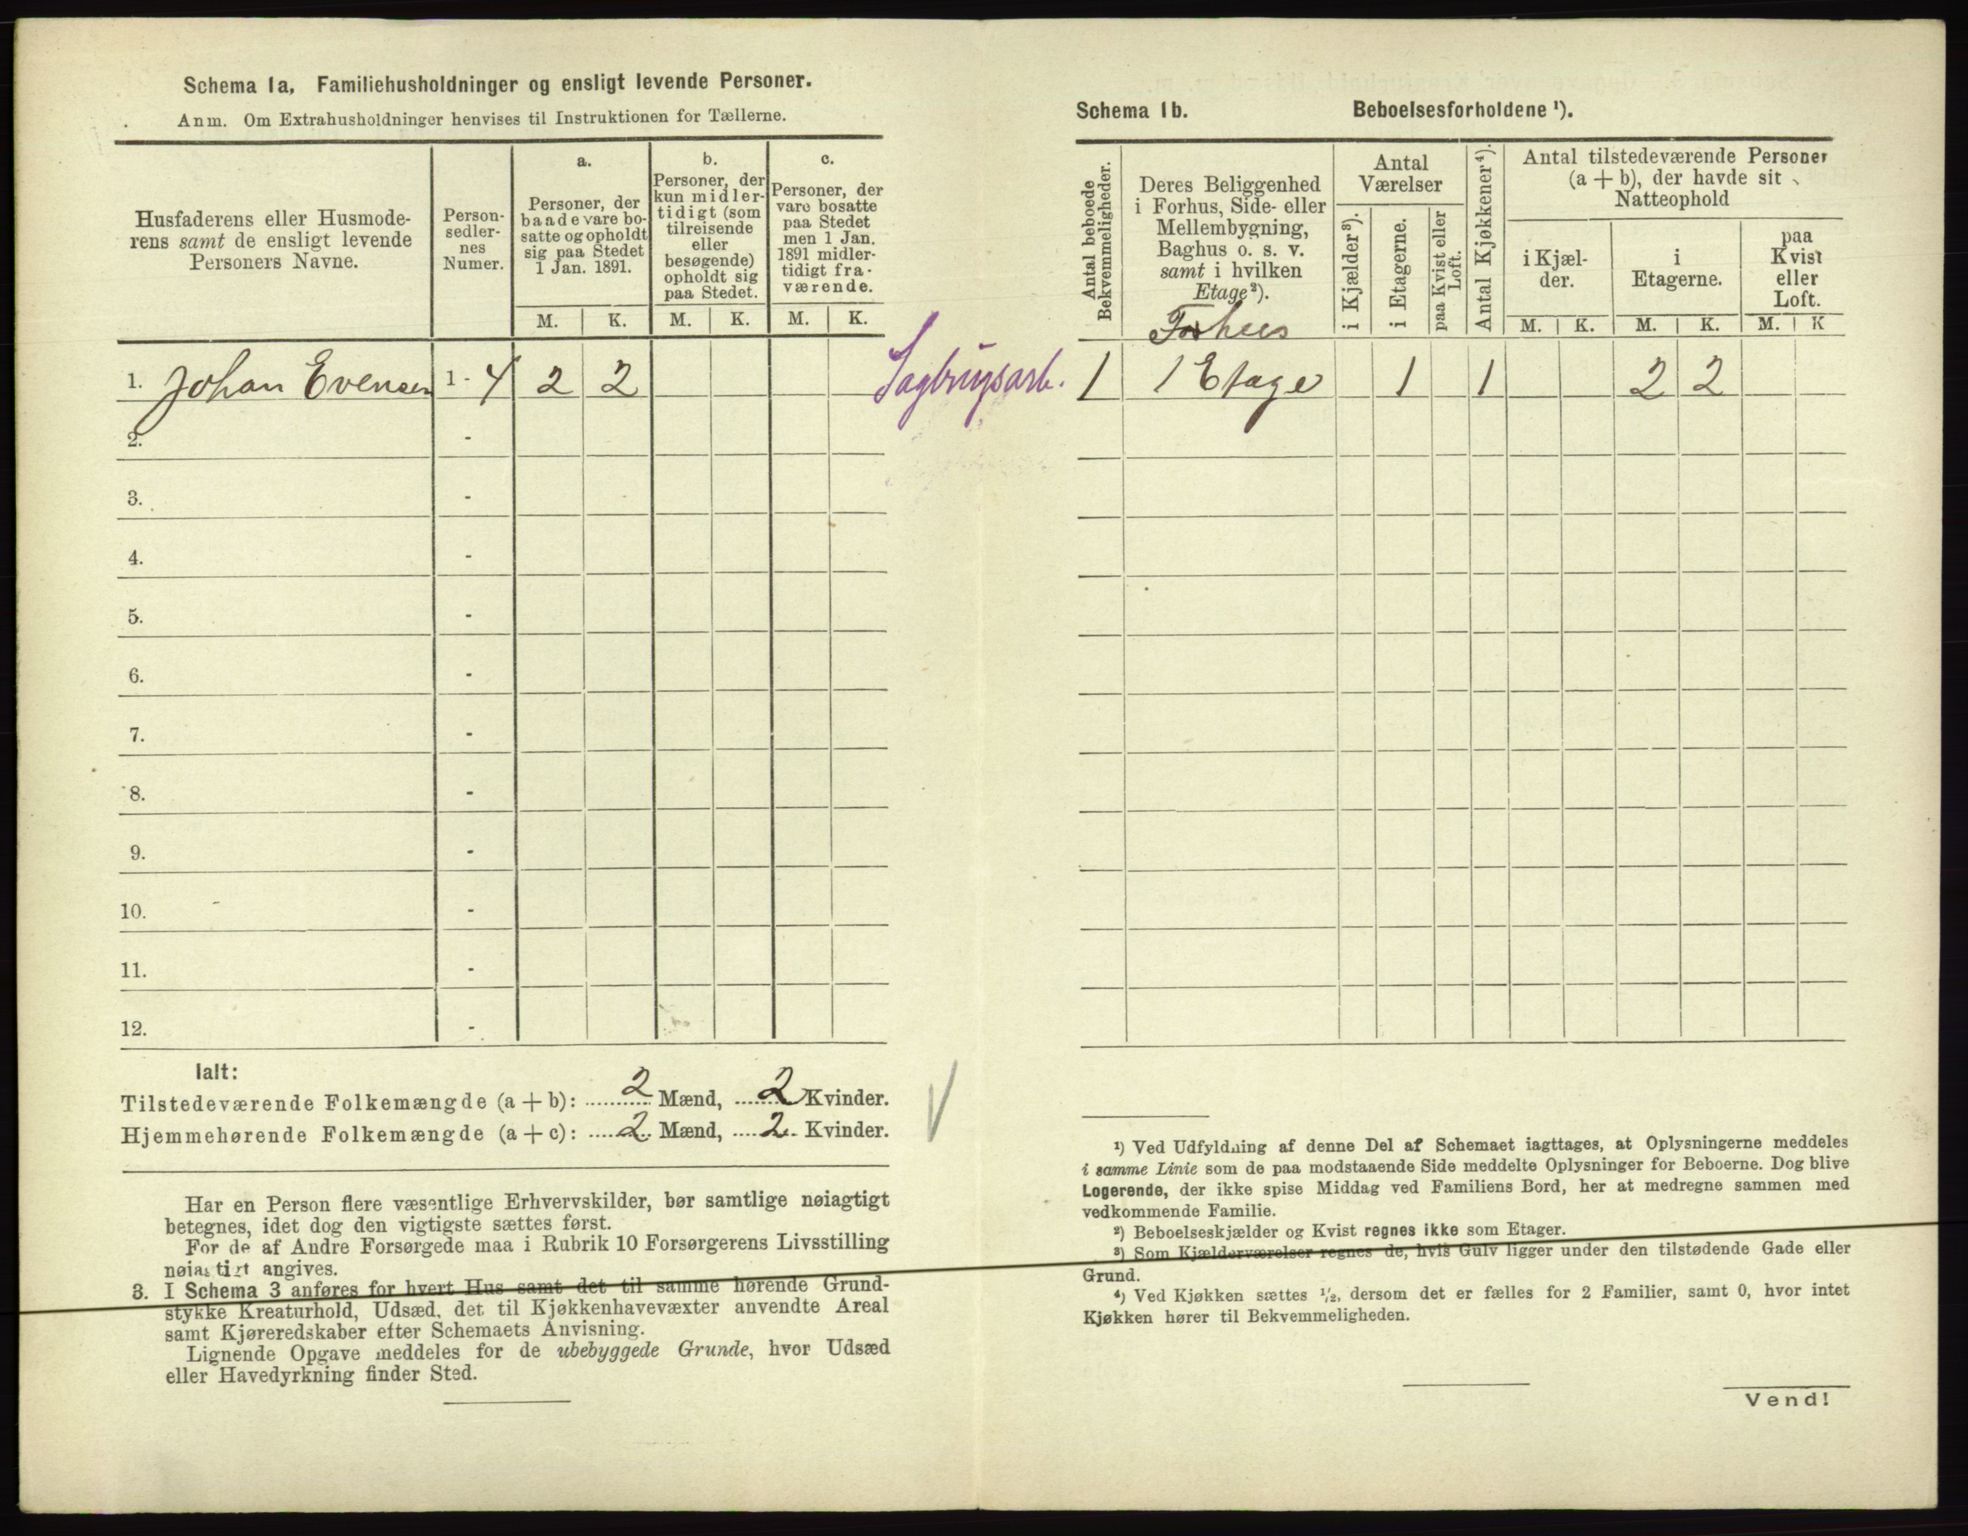 Schema 1a, Familiehusholdninger og ensligt levende Personer.
Anm. Om Extrahusholdninger henvises til Instruktionen for Tællerne.
Husfaderens eller Husmode-
rens samt de ensligt levende
Personers Navne.
Person-
sedler-
nes
Numer.
a.
Personer, der
baade vare bo-
satte og opholdt
sig paa Stedet
1 Jan. 1891.
M. K.
b.
Personer, der
kun midler-
tidigt (som
tilreisende
eller
besøgende)
opholdt sig
paa Stedet.
M. K.
c.
Personer, der
vare bosatte
paa Stedet
men 1 Jan.
1891 midler-
tidigt fra-
værende.
M. K.
1. Johan Evensen 1 - 4 2 2
2. -
3. -
4. -
5. -
6. -
7. -
8. -
9. -
10. -
11. -
12. -
Ialt:
Tilstedeværende Folkemængde (a + b): 2 Mænd, 2 Kvinder.
Hjemmehørende Folkemængde (a + c): 2 Mænd, 2 Kvinder.
Har en Person flere væsentlige Erhvervskilder, bør samtlige nøiagtigt
betegnes, idet dog den vigtigste sættes først.
For de af Andre Forsørgede maa i Rubrik 10 Forsørgerens Livsstilling
nøiagtigt angives.
3. I Schema 3 anføres for hvert Hus samt det til samme hørende Grund-
stykke Kreaturhold, Udsæd, det til Kjøkkenhavevæxter anvendte Areal
samt Kjøreredskaber efter Schemaets Anvisning.
Lignende Opgave meddeles for de ubebyggede Grunde, hvor Udsæd
eller Havedyrkning finder Sted.
Sagbrugsarb.
Schema 1b. Beboelsesforholdene ¹).
Antal beboede
Bekvemmeligheder.
Deres Beliggenhed
i Forhus, Side- eller
Mellembygning,
Baghus o. s. v.
samt i hvilken
Etage²).
Antal
Værelser
i Kjælder³).
i Etagerne.
paa Kvist eller
Loft.
Antal Kjøkkener⁴).
Antal tilstedeværende Personer
(a + b), der havde sit
Natteophold
i Kjæl-
der.
M. K.
i
Etagerne.
M. K.
paa
Kvist
eller
Loft.
M. K
Forhus
1 1 Etage 1 1 2 2
¹) Ved Udfyldning af denne Del af Schemaet iagttages, at Oplysningerne meddeles
i samme Linie som de paa modstaaende Side meddelte Oplysninger for Beboerne. Dog blive
Logerende, der ikke spise Middag ved Familiens Bord, her at medregne sammen med
vedkommende Familie.
²) Beboelseskjælder og Kvist regnes ikke som Etager.
³) Som Kjælderværelser regnes de, hvis Gulv ligger under den tilstødende Gade eller
Grund.
⁴) Ved Kjøkken sættes ½, dersom det er fælles for 2 Familier, samt 0, hvor intet
Kjøkken hører til Bekvemmeligheden.
Vend!